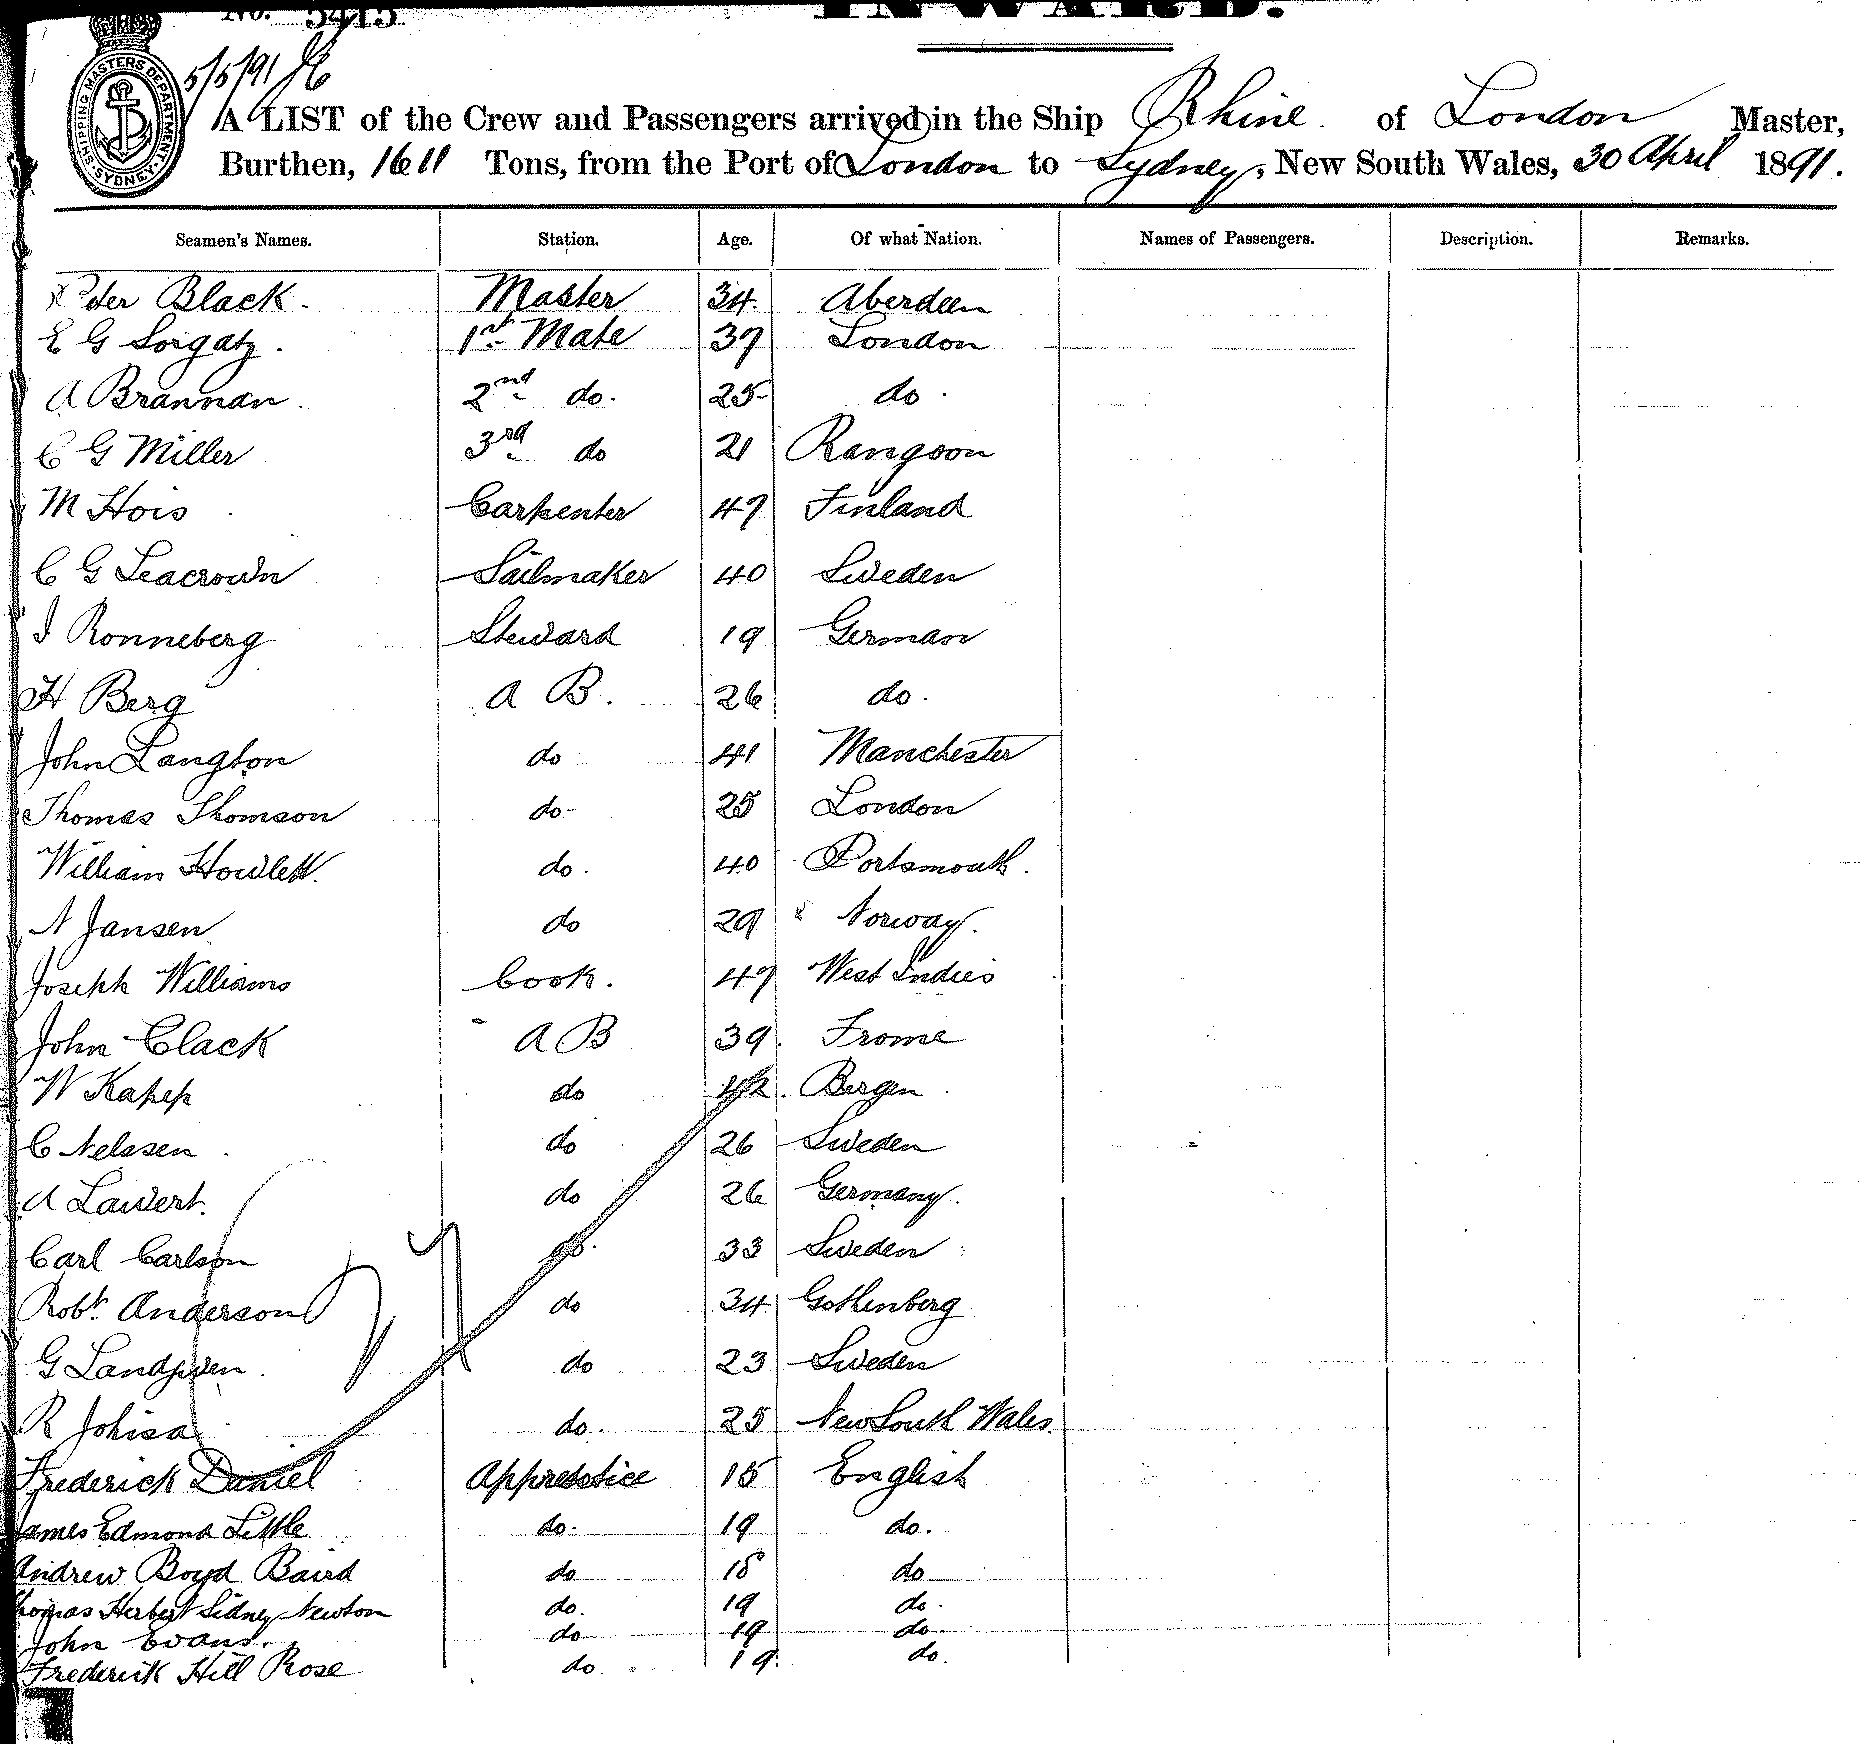 No. 5415
INWARD.
SHIPPING MASTERS DEPARTMENT. SYDNEY.
5/5/91
A LIST of the Crew and Passengers arrived in the Ship Rhine of London Master,
Burthen, 1611 Tons, from the Port of London to Sydney, New South Wales, 30 April 1891.
Seamen's Names. Station. Age. Of what Nation. Names of Passengers. Description. Remarks.
Peter Black. Master 34 Aberdeen
E G Sorgatz. 1st Mate 37 London
A Brannan. 2nd do. 25 do.
C G Miller 3rd do 21 Rangoon
M Hois Carpenter 47 Finland
C G Seacrown Sailmaker 40 Sweden
J Ronneberg Steward 19 German
H Berg A B. 26 do.
John Langton do 41 Manchester
Thomas Thomson do 25 London
William Howlett. do. 40 Portsmouth.
N Jansen do 29 Norway.
Joseph Williams Cook. 47 West Indies
John Clack A B 39 Frome
W Kapep do 42. Bergen
C Nelssen do 26 Sweden
A Lawert. do 26 Germany.
Carl Carlson do. 33 Sweden
Robt. Anderson do 34 Gothenberg
G do 23 Sweden
R Johisa do. 25 New South Wales.
Frederick Daniel Apprentice 15 English
James Edmond Little do. 19 do.
Andrew Boyd Baird do 18 do
Thomas Herbert Sidney Newton do. 19 do.
John Evans. do 19 do.
Frederick Hill Rose do. 19. do.